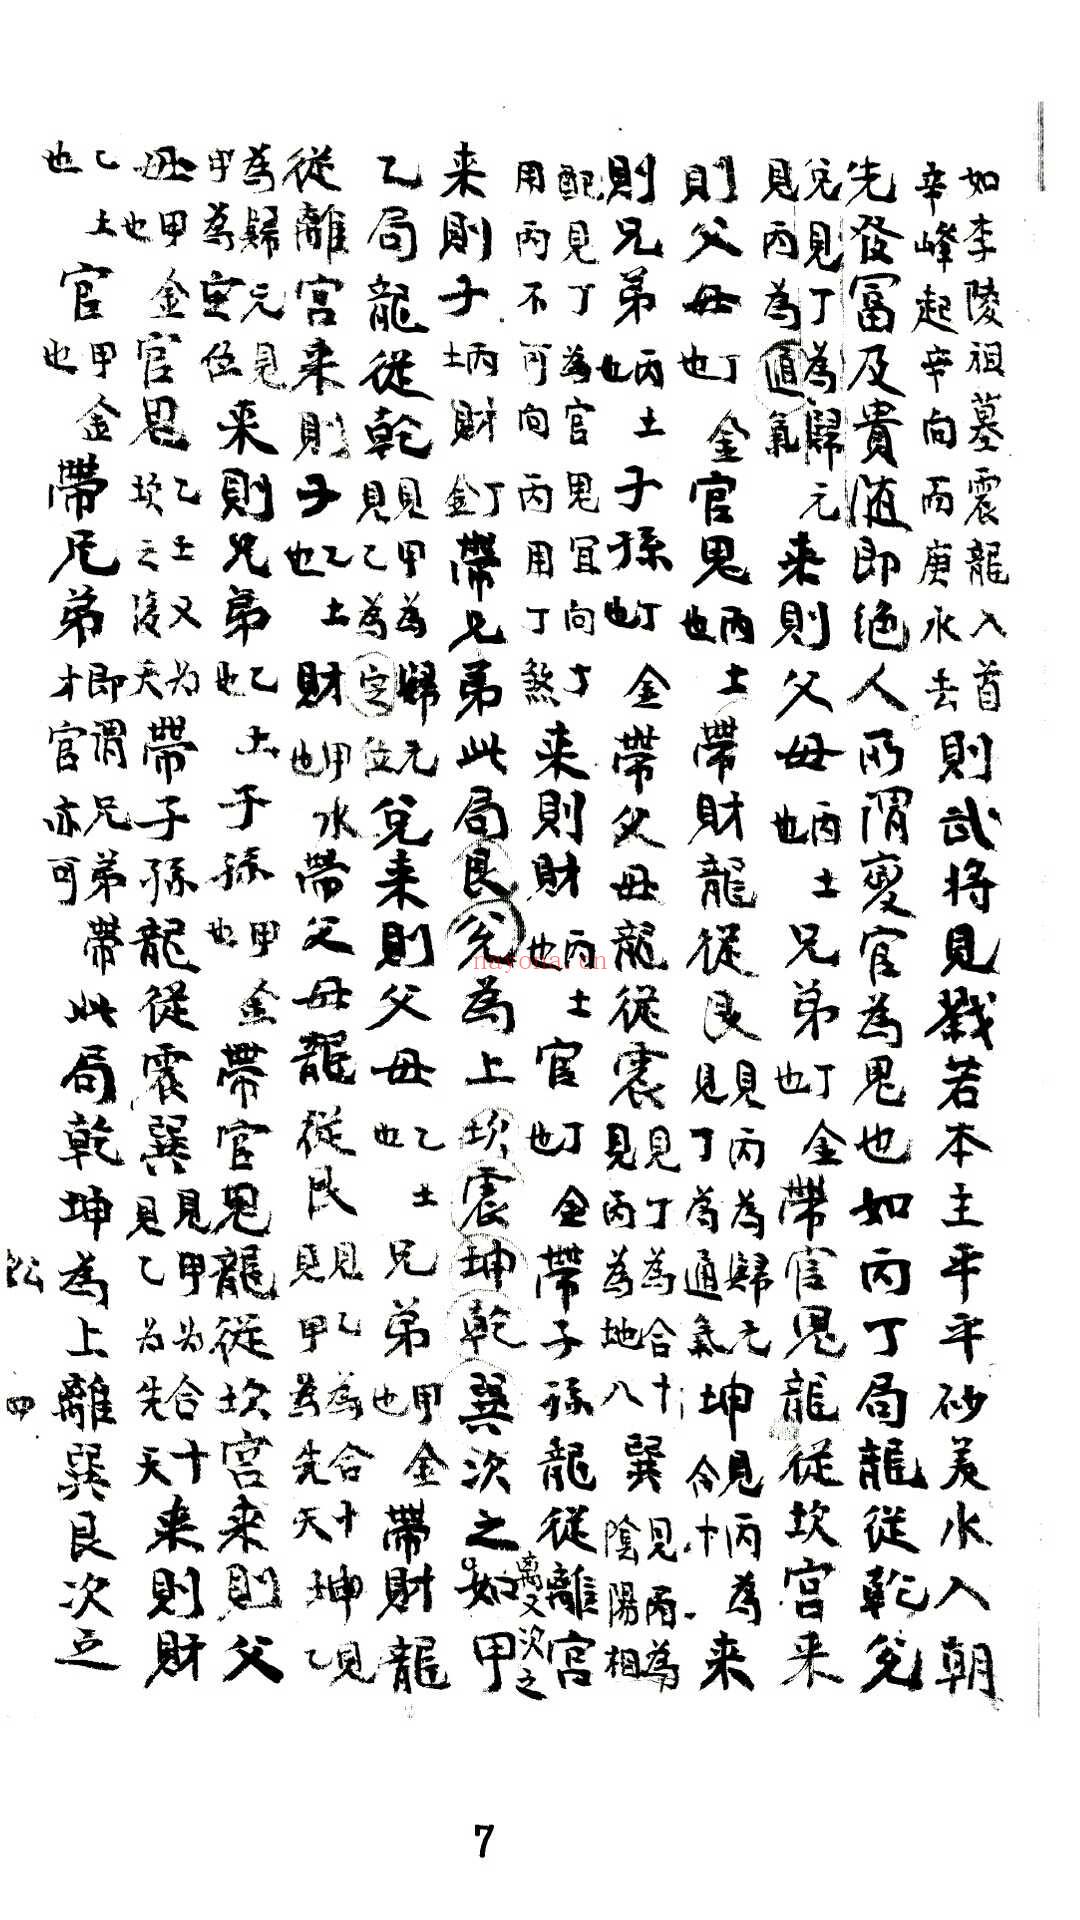 如李陵祖墓震龍入首
辛峰起辛向而庚水去
則武將見戮若本主平平砂美水入朝
先發冨及貴随即絶人所謂变官為鬼也如丙丁局龍從乾兊
兊見丁為歸元
見丙為通氣
来則父母
丙土
也
兄弟
丁金
也
帶官鬼龍從坎宮来
則父母
丁金
也
官鬼
丙土
也
帶財龍從艮
見丙為歸元
見丁為通氣
坤
見丙為
合十
来
則兄弟
丙土
也
子孫
丁金
也
帶父母龍從震
見丁為合十
見丙為地八
巽
見丙為
陰陽相
配見丁為官鬼宜向丁
用丙不可向丙用丁煞
来則財
丙土
也
官
丁金
也
帶子孫龍從離宮
来則子
丙土
財
丁金
帶兄弟此局艮兊為上坎震坤乾巽次之
離又次之
如甲
乙局龍從乾
見甲為歸元
見乙為定位
兊来則父母
乙土
也
兄弟
甲金
也
帶財龍
從離宮来則子
乙土
也
財
甲水
也
帶父母龍從艮
見乙為合十
見甲為先天
坤
見
乙
為歸元見
甲為定位
来則兄弟
乙土
也
子孫
甲金
也
帶官鬼龍從坎宮来則父
母
甲金
也
官鬼
乙土又为
坎之後天
帶子孫龍從震巽
見甲为合十
見乙为先天
来則財
乙土
也
官
甲金
也
帶兄弟
即謂兄弟帶
才官亦可
此局乾坤為上離巽艮次之
四
7
nayona.cn